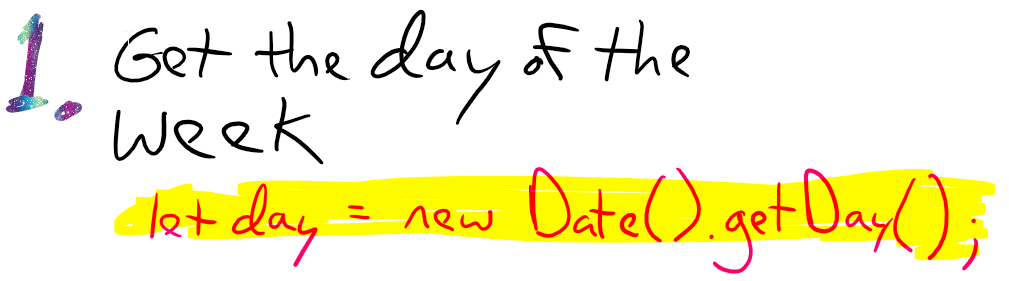 1. Get the day of the
week
let day = new Date().getDay();